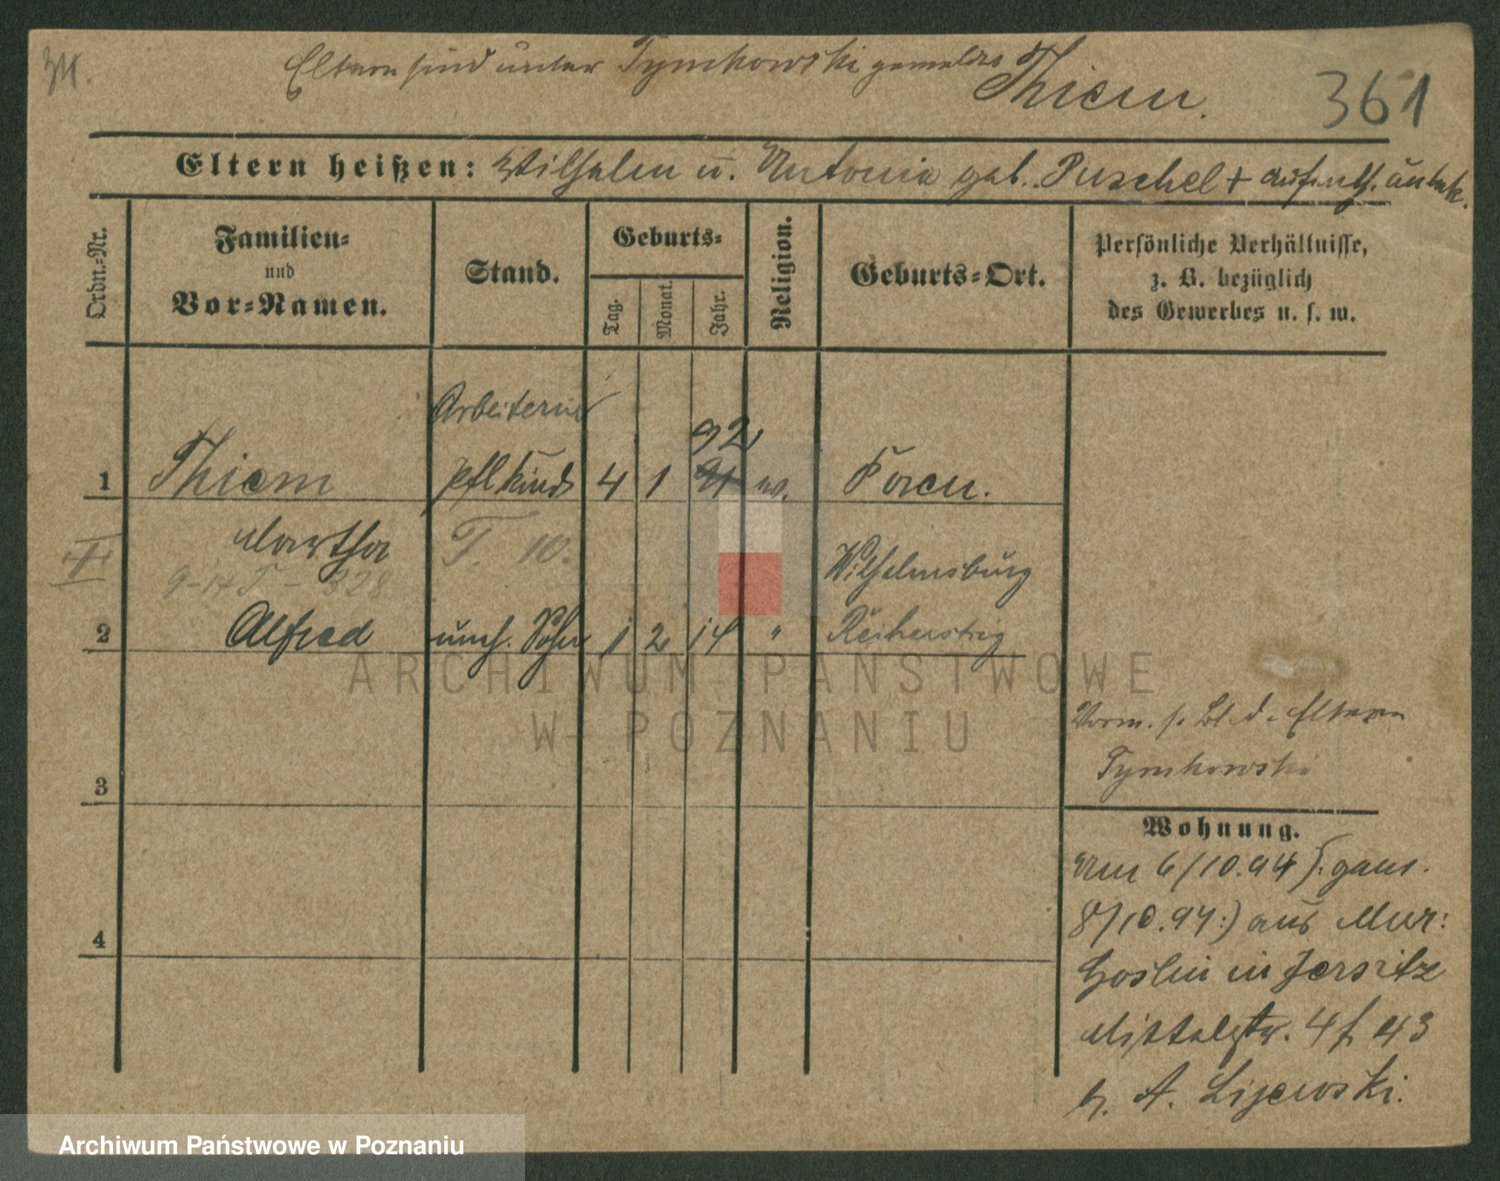 Eltern sind unter Tymkowski gemeldet
Thiem.
361
Eltern heißen: Wilhelm u. Antonie geb. Puschel + Aufenth. unbek.
Ordn.-Nr.
Familien-
und
Vor-Namen.
Stand.
Geburts-
Tag.
Monat.
Jahr.
Religion.
Geburts-Ort.
Persönliche Verhältnisse,
z. B. bezüglich
des Gewerbes u. s. w.
Arbeiterin
92
1 Thiem Pflkind 4 1 91 Posen.
Martha T. 10.
9-14 T - 328
Wilhelmsburg
2 Alfred uneh. Sohn 1 2 14 " Reiherstieg
Vorm. s. Bl. d. Eltern
Tymkowski
3
Wohnung.
Am 6/10.94 (: gem.
8/10.94:) aus Mur:
Goslin in Jersitz
Mittelstr. 4 f 43
b. A. Lijewski.
4
ARCHIWUM PAŃSTWOWE
W POZNANIU
Archiwum Państwowe w Poznaniu